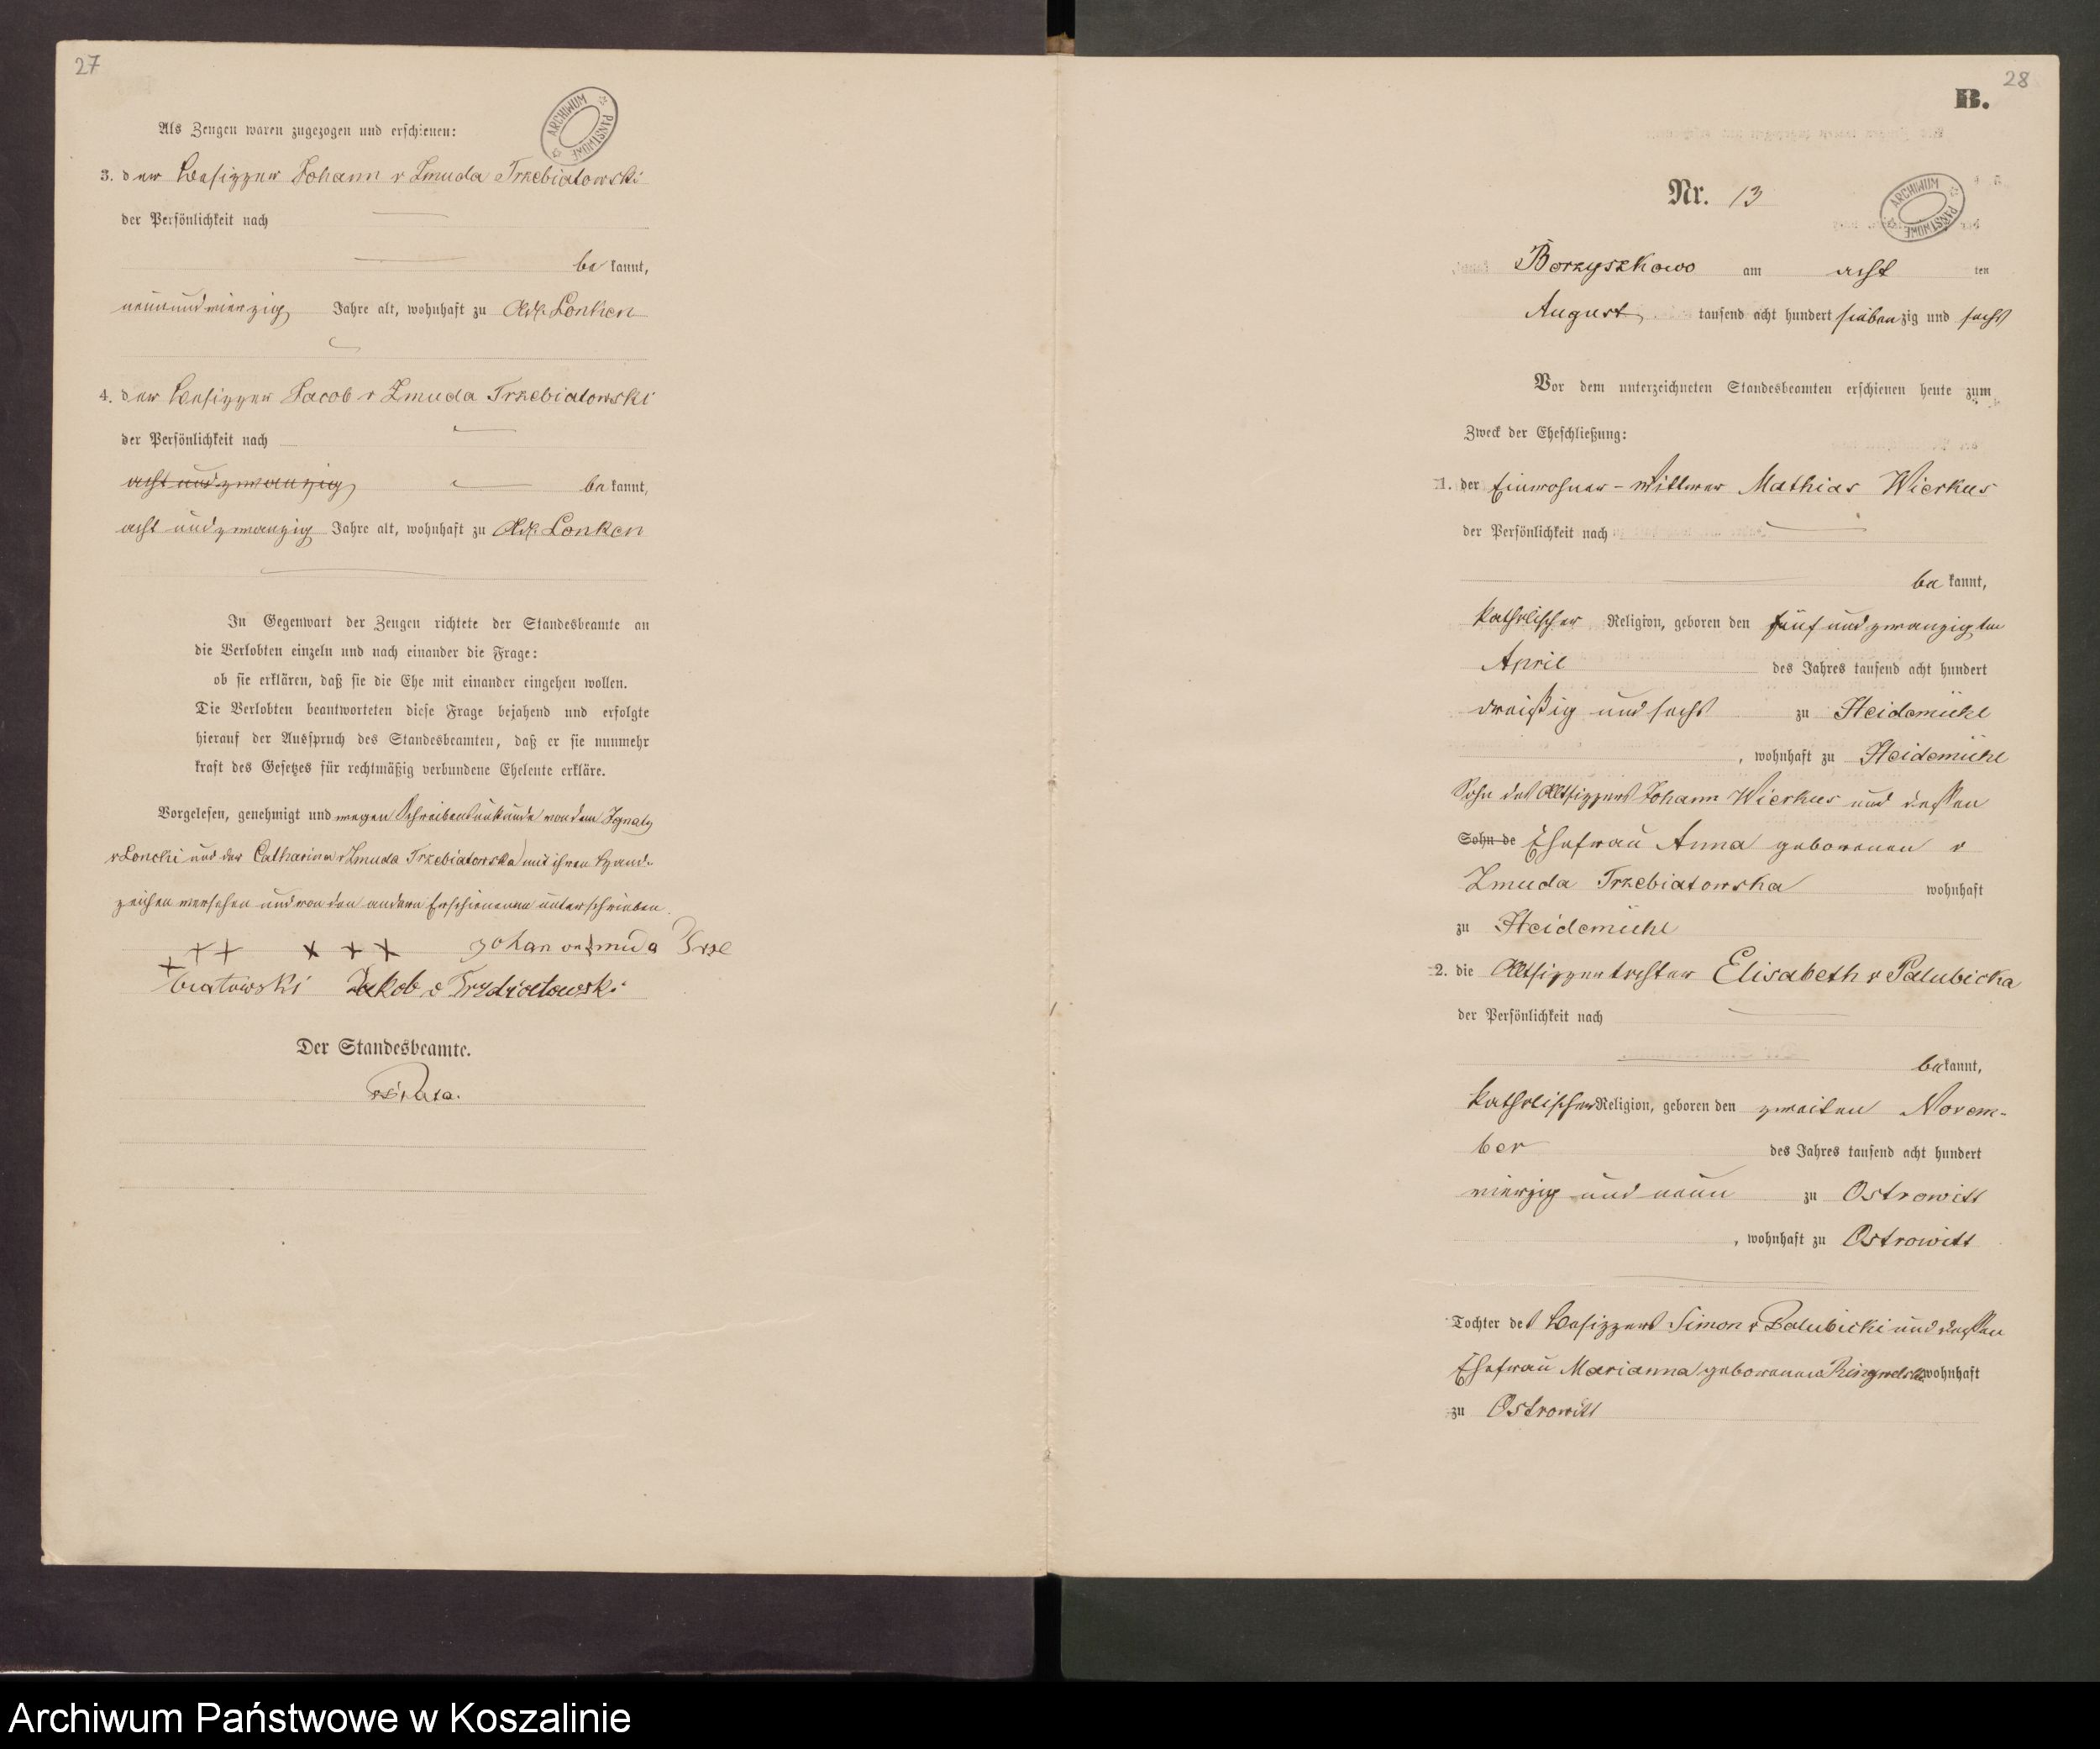 27
Als Zeugen waren zugezogen und erschienen:
ARCHIWUM PAŃSTWOWE
3. der Besizzer Johann v Zmuda Trzebiatowski
der Persönlichkeit nach
be kannt,
neunundvierzig Jahre alt, wohnhaft zu Adl. Lonken
4. der Besizzer Jacob v Zmuda Trzebiatowski
der Persönlichkeit nach
acht und zwanzig be kannt,
acht und zwanzig Jahre alt, wohnhaft zu Adl. Lonken
In Gegenwart der Zeugen richtete der Standesbeamte an
die Verlobten einzeln und nach einander die Frage:
ob sie erklären, daß sie die Ehe mit einander eingehen wollen.
Die Verlobten beantworteten diese Frage bejahend und erfolgte
hierauf der Ausspruch des Standesbeamten, daß er sie nunmehr
kraft des Gesetzes für rechtmäßig verbundene Eheleute erkläre.
Vorgelesen, genehmigt und wegen Schreibensunkunde von dem Ignatz
v Loncki und der Catharina v Zmuda Trzebiatowska mit ihren Hand-
zeichen versehen und von den andern Erschienenen unterschrieben.
+ + + + + Johan von zmuda Trze
+ biatowski Jakob v Trzebiatowski
Der Standesbeamte.
28
B.
Nr. 13
ARCHIWUM PAŃSTWOWE
Borzyszkowo am acht ten
August tausend acht hundert siebenzig und sechs
Vor dem unterzeichneten Standesbeamten erschienen heute zum
Zweck der Eheschließung:
1. der Einwohner-Wittwer Mathias Wierkus
der Persönlichkeit nach
be kannt,
katholischer Religion, geboren den fünf und zwanzigsten
April des Jahres tausend acht hundert
dreißig und sechs zu Heidemühl
, wohnhaft zu Heidemühl
Sohn des Altsizzers Johann Wierkus und dessen
Sohn de Ehefrau Anna geborenen v
Zmuda Trzebiatowska wohnhaft
zu Heidemühl
2. die Altsizzertochter Elisabeth v Palubicka
der Persönlichkeit nach
be kannt,
katholischer Religion, geboren den zweiten Novem-
ber des Jahres tausend acht hundert
vierzig und neun zu Ostrowitt
, wohnhaft zu Ostrowitt
Tochter des Besizzers Simon v Palubicki und dessen
Ehefrau Marianna geborenen wohnhaft
zu Ostrowitt
Archiwum Państwowe w Koszalinie